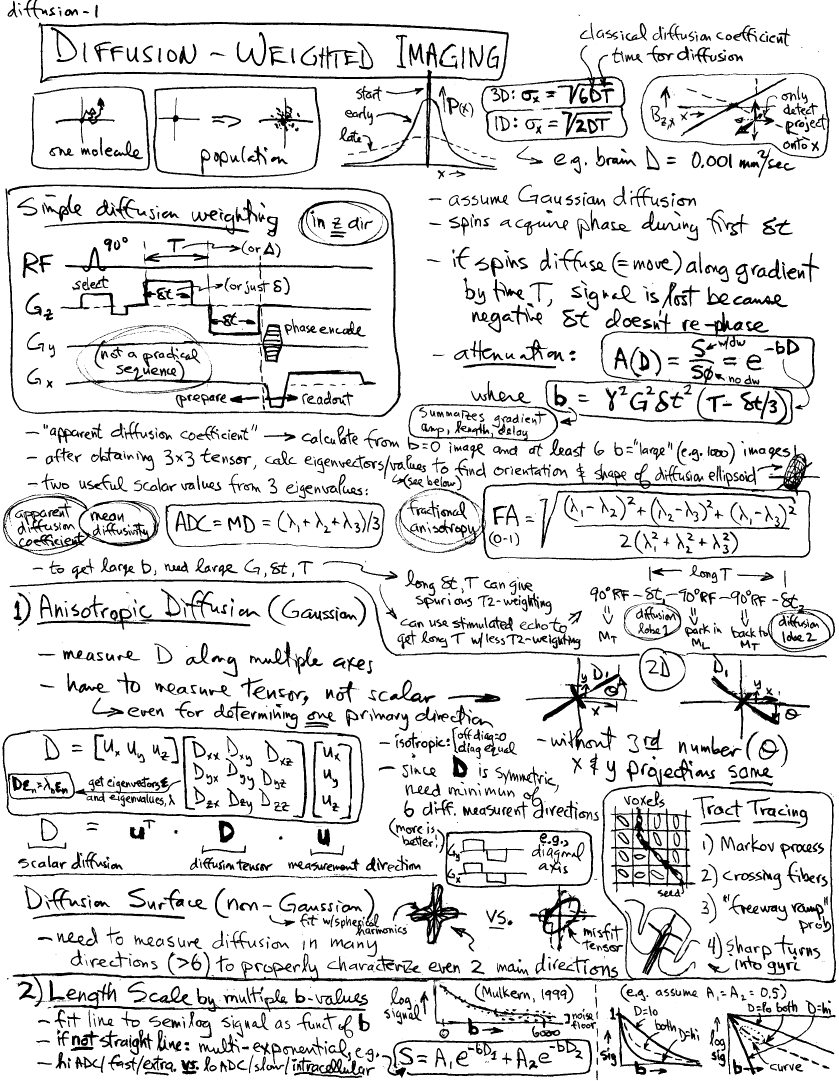 diffusion-1
DIFFUSION - WEIGHTED IMAGING
classical diffusion coefficient
time for diffusion
one molecule
population
start
early
late
P(x)
x →
3D: σx = √6DT
1D: σx = √2DT
↳ e.g. brain D = 0.001 mm²/sec
Bz,x
x →
only
detect
project
onto x
Simple diffusion weighting
in z dir
RF
90°
T
(or Δ)
select
δt
(or just δ)
Gz
δt
phase encode
Gy
(not a practical
sequence)
Gx
prepare ← → readout
- assume Gaussian diffusion
- spins acquire phase during first δt
- if spins diffuse (= move) along gradient
by time T, signal is lost because
negative δt doesn't re-phase
- attenuation:
A(D) = S/SØ = e^-bD
w/dw
no dw
where b = γ²G²δt² (T - δt/3)
Summarizes gradient
amp, length, delay
- "apparent diffusion coefficient" → calculate from b=0 image and at least 6 b="large" (e.g. 1000) images
- after obtaining 3x3 tensor, calc eigenvectors/values to find orientation & shape of diffusion ellipsoid →
(see below)
- two useful scalar values from 3 eigenvalues:
apparent
diffusion
coefficient
mean
diffusivity
ADC = MD = (λ1 + λ2 + λ3)/3
fractional
anisotropy
FA = √ (λ1 - λ2)² + (λ2 - λ3)² + (λ1 - λ3)² / 2(λ1² + λ2² + λ3²)
(0-1)
- to get large b, need large G, δt, T
long δt, T can give
spurious T2-weighting
can use stimulated echo to
get long T w/less T2-weighting
long T
90°RF - δt1 - 90°RF - 90°RF - δt2
MT
diffusion
lobe 1
park in
ML
back to
MT
diffusion
lobe 2
1) Anisotropic Diffusion (Gaussian)
- measure D along multiple axes
- have to measure tensor, not scalar →
↳ even for determining one primary direction
2D
D1
y
x
θ
D1
y
x
θ
- without 3rd number (θ)
x & y projections same
D = [ux uy uz] [Dxx Dxy Dxz Dyx Dyy Dyz Dzx Dzy Dzz] [ux uy uz]
Dεn = λnεn
get eigenvectors, ε
and eigenvalues, λ
D = uᵀ · D · u
scalar diffusion
diffusion tensor
measurement direction
- isotropic: off diag=0
diag equal
- since D is symmetric,
need minimun of
6 diff. measurent directions
(more is
better!)
Gy
Gx
e.g.,
diagonal
axis
voxels
seed
Tract Tracing
1) Markov process
2) crossing fibers
3) "freeway ramp"
prob
4) sharp turns
into gyri
Diffusion Surface (non-Gaussian)
↳ fit w/spherical
harmonics
vs.
misfit
tensor
- need to measure diffusion in many
directions (>6) to properly characterize even 2 main directions
2) Length Scale by multiple b-values
- fit line to semilog signal as funct of b
- if not straight line: multi-exponential, e.g.
- hi ADC/fast/extra. vs. lo ADC/slow/intracellular
log
signal
(Mulkern, 1999)
noise
floor
0
b →
6000
S = A1e^-bD1 + A2e^-bD2
(e.g. assume A1 = A2 = 0.5)
1
sig
D=lo
both
D=hi
b
log
sig
D=lo
both
D=hi
b
curve